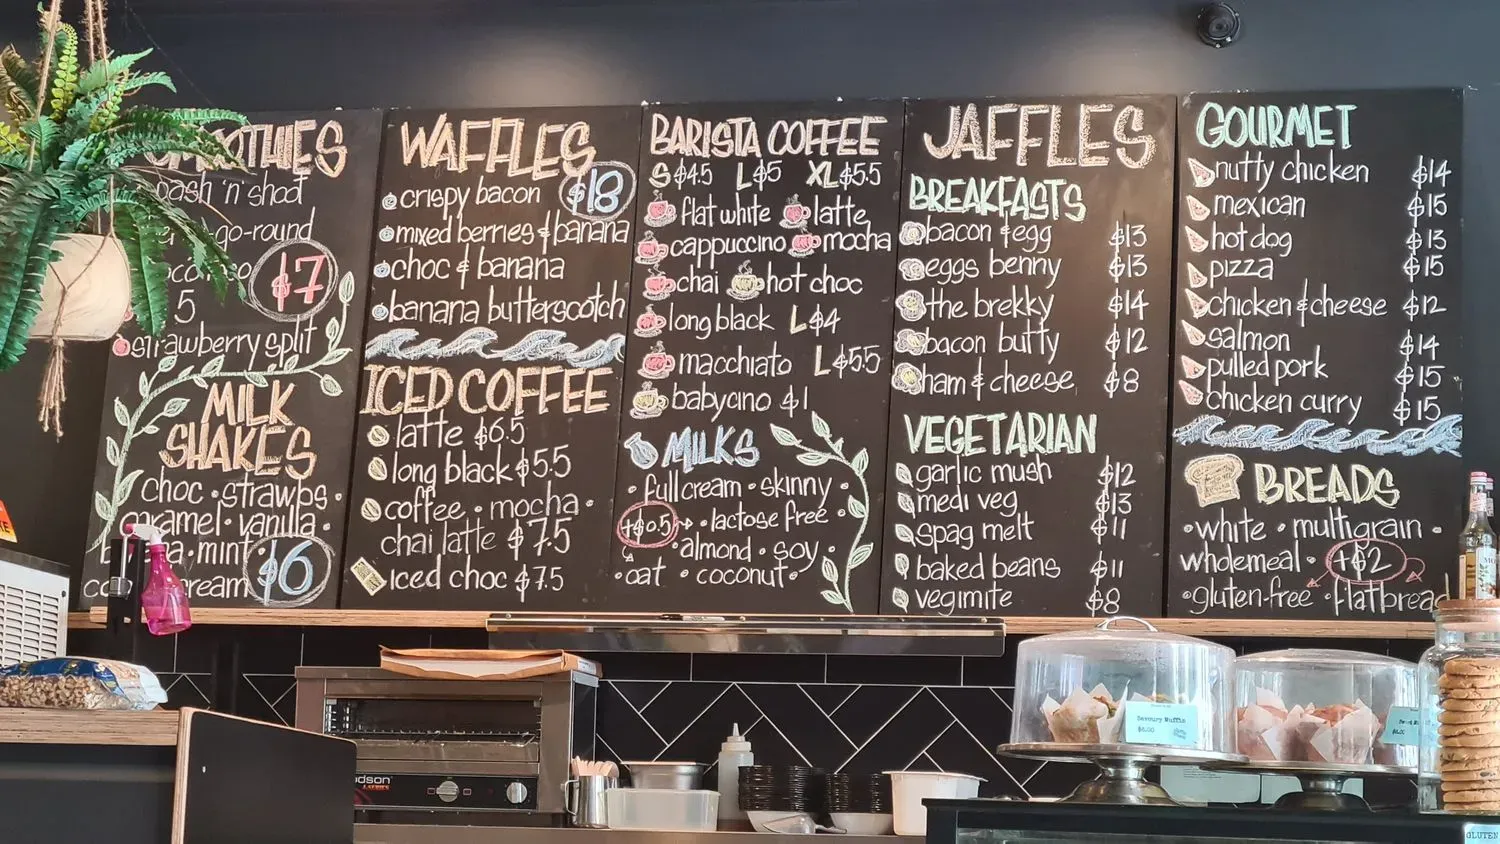 SMOOTHIES
'n' shoot
go-round
$7
5
strawberry split
MILK
SHAKES
choc • strawbs •
caramel • vanilla •
mint
cream $6
WAFFLES
$18
crispy bacon
mixed berries & banana
choc & banana
banana butterscotch
ICED COFFEE
latte $6.5
long black $5.5
coffee • mocha •
chai latte $7.5
iced choc $7.5
BARISTA COFFEE
S $4.5 L $5 XL $5.5
flat white latte
cappuccino mocha
chai hot choc
long black L $4
macchiato L $5.5
babycino $1
MILKS
• full cream • skinny
+$0.5 • lactose free •
• almond • soy •
• oat • coconut •
JAFFLES
BREAKFASTS
bacon & egg $13
eggs benny $13
the brekky $14
bacon butty $12
ham & cheese $8
VEGETARIAN
garlic mush $12
medi veg $13
spag melt $11
baked beans $11
vegimite $8
GOURMET
nutty chicken $14
mexican $15
hot dog $13
pizza $15
chicken & cheese $12
salmon $14
pulled pork $15
chicken curry $15
BREADS
• white • multigrain •
wholemeal • +$2
• gluten-free • flatbread
Savoury Muffin
$6.00
GLUTEN